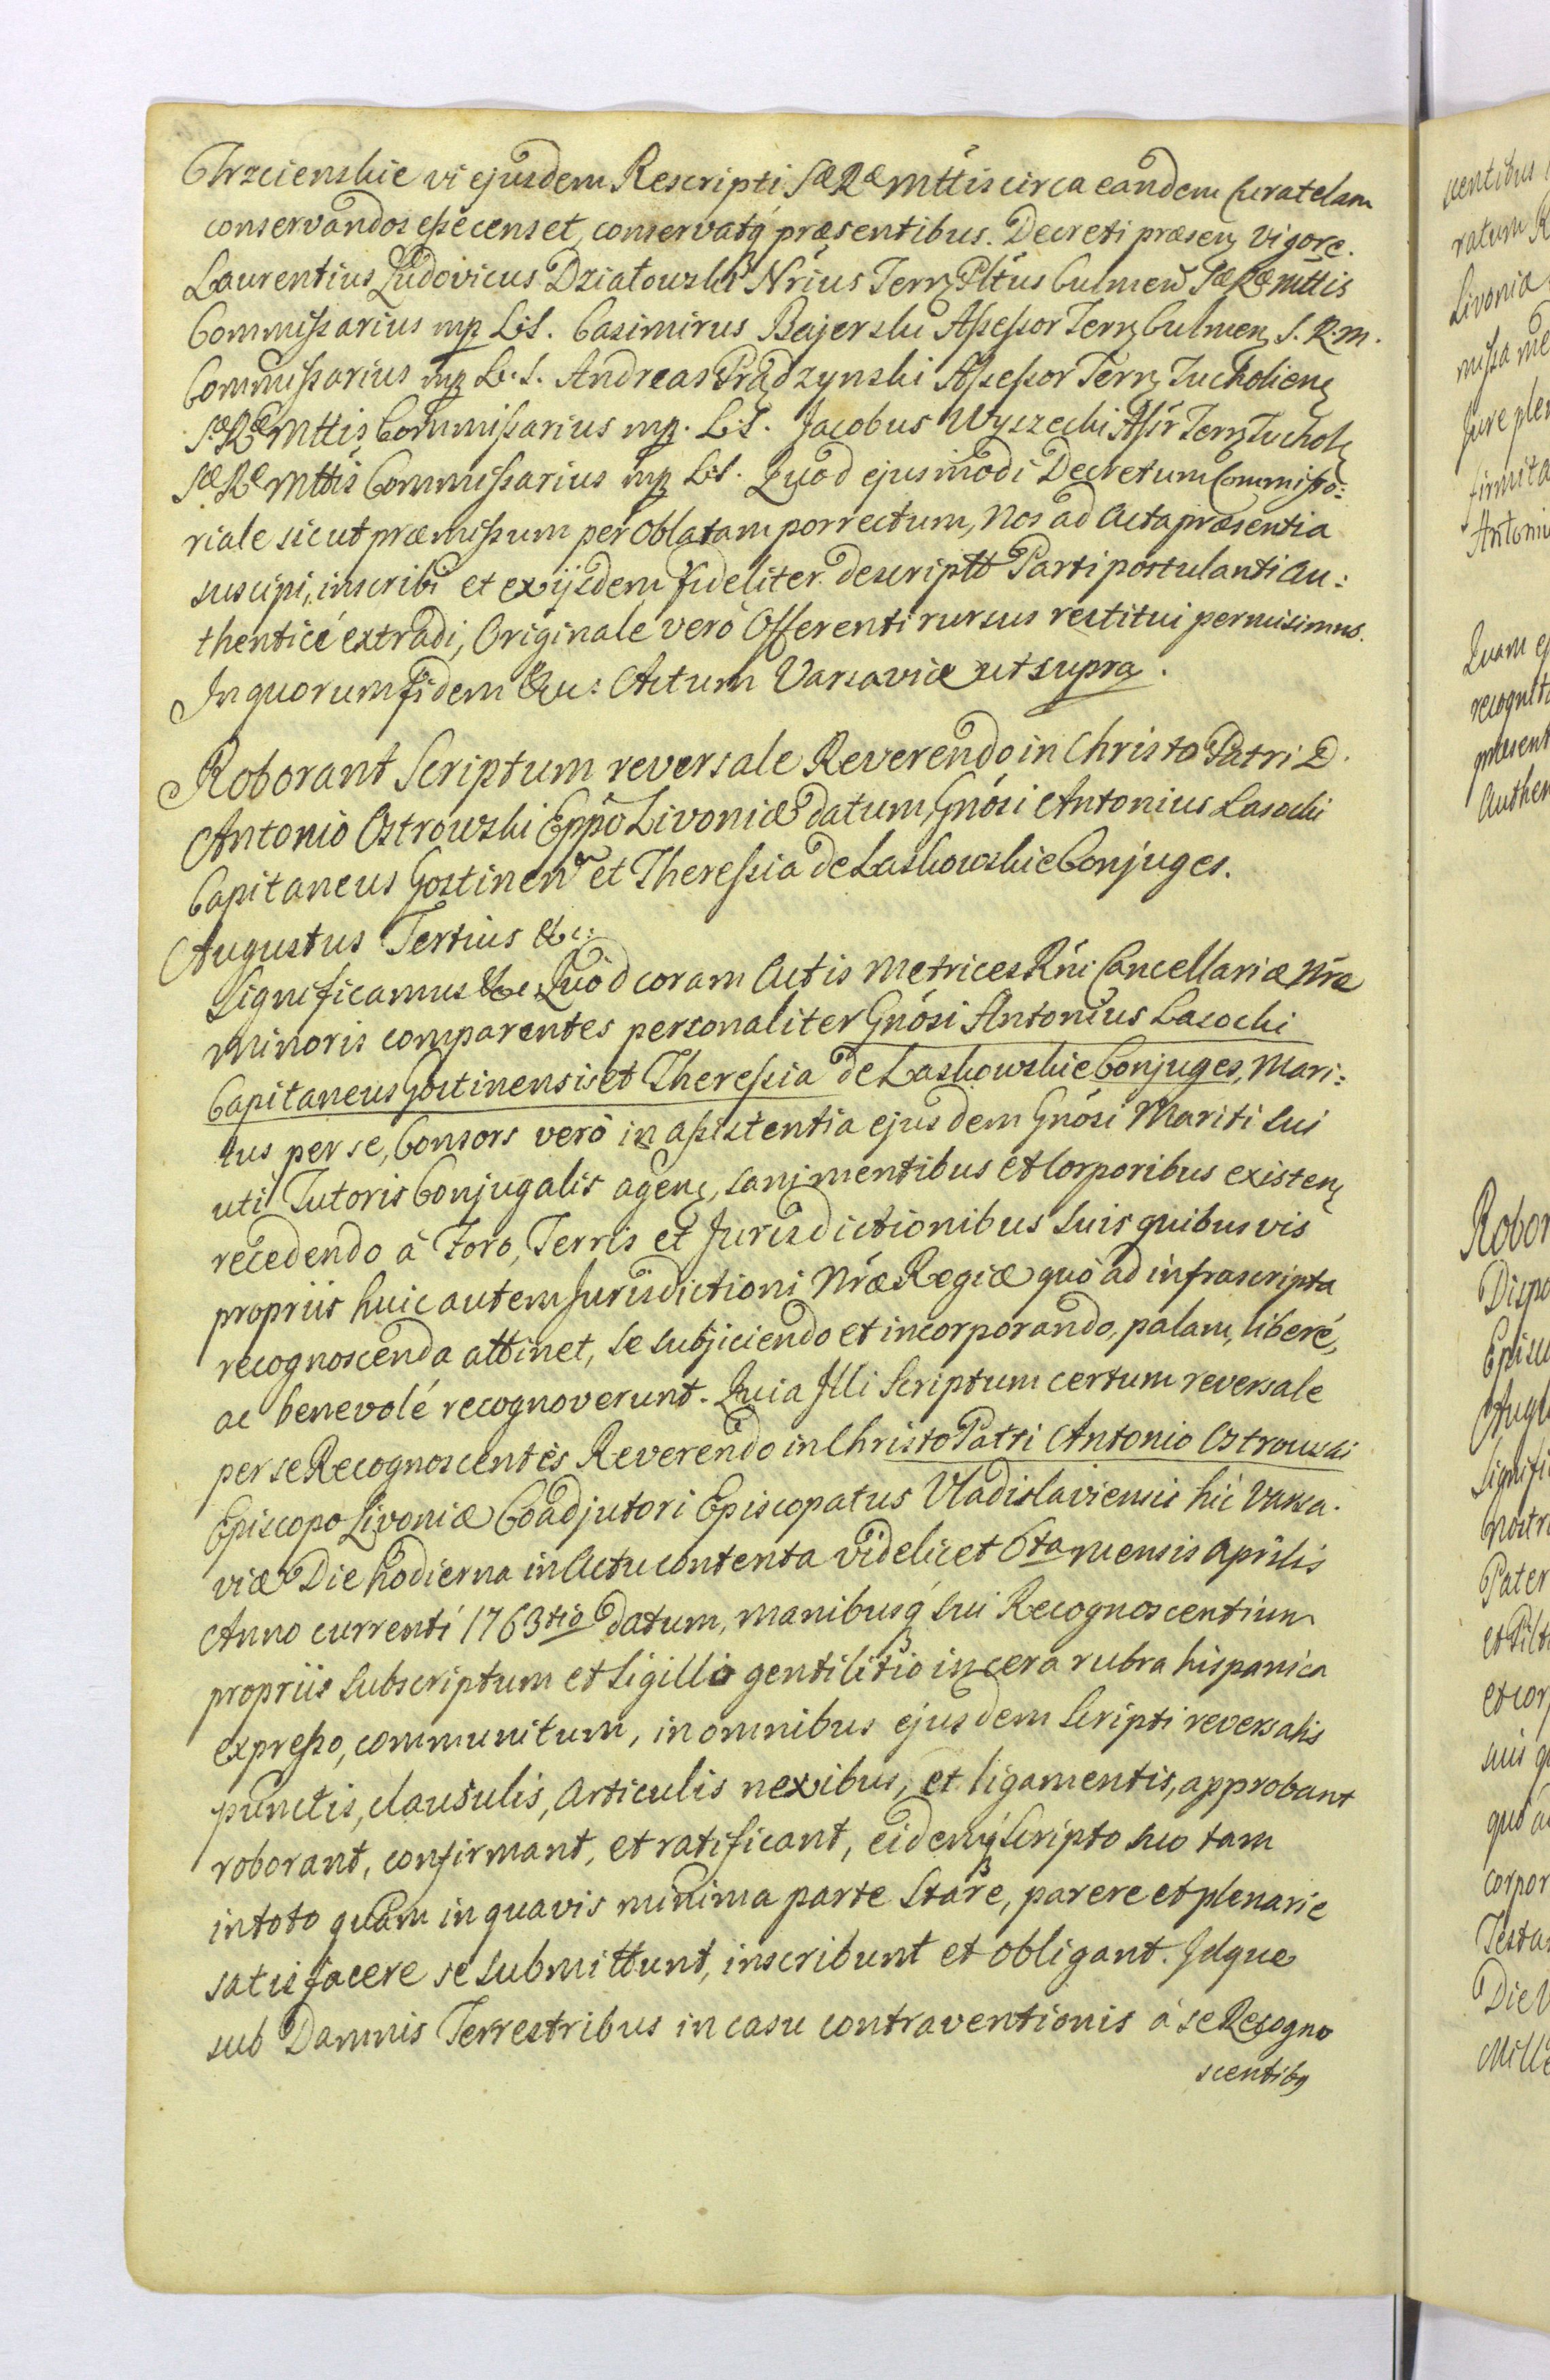 Trzcienskie vi ejusdem Rescripti Sæ Ræ Mttis circa eandem Curatelam
conservandos esse censet, conservatq́ præsentibus. Decreti præsenꝫ vigore.
Laurentius Ludovicus Dziatowski Nrius Terrꝫ Pltus Culmen̄ Sæ Ræ Mttis
Commissarius mp L.S. Casimirus Bajerski Assessor Terrꝫ Culmenꝫ S.R.M.
Commissarius mp L.S. Andreas Prądzynski Assessor Terrꝫ Tucholienꝫ
Sæ Ræ Mttis Commissarius mp. L.S. Jacobus Wyszecki Assr Terrꝫ Tucholꝫ
Sæ Ræ Mttis Commissarius mp L.S. Quod ejusmodi Decretum Commisso:
riale sicut præmissum per Oblatam porrectum, Nos ad Acta præsentia
suscipi, inscribi et ex ijsdem fideliter descriptt Parti postulanti Au:
thenticé extradi, Originale verò Offerenti rursus restitui permisimus.
In quorum fidem &c: Actum Varsaviæ ut supra.
Roborant Scriptum reversale Reverendo in Christo Patri D.
Antonio Ostrowski Eppo Livoniæ datum, Gnósi Antonius Lasocki
Capitaneus Gostinen̄ et Theressia de Laskowskie Conjuges.
Augustus Tertius &c:
Significamus &c: Quòd coram Actis Metrices Rńi Cancellariæ Nrae
Minoris comparentes personaliter Gnósi Antonius Lasocki
Capitaneus Gostinensis et Theressia de Laskowskie Conjuges, Mari:
tus per se, Consors verò in assistentia ejusdem Gnósi Mariti sui
uti Tutoris Conjugalis agenꝫ, sani mentibus et Corporibus existenꝫ
recedendo à Foro, Terris et Jurisdictionibus suis quibusvis
propriis huic autem Jurisdictioni Nræ Regiæ quò ad infrascripta
recognoscenda attinet, se subjiciendo et incorporando, palam, liberé,
ac benevolé recognoverunt. Quia Illi Scriptum certum reversale
per se Recognoscentes Reverendo in Christo Patri Antonio Ostrowski
Episcopo Livoniæ Coadjutori Episcopatus Vladislaviensis hic Varsa.
viæ Die hodierna in Actu contenta videlicet 6ta mensis Aprilis
Anno currenti 1763tio datum, manibusq́ sui Recognoscentium
propriis subscriptum et Sigillo gentilitio in cera rubra hispanica
expresso, communitum, in omnibus ejusdem Scripti reversalis
punctis, clausulis, Articulis nexibus, et ligamentis, approbant
roborant, confirmant, et ratificant, eidemq́ Scripto suo tam
in toto quàm in quavis minima parte Stare, parere et plenarie
satisfacere se submittunt, inscribunt et obligant. Idque
sub Damnis Terrestribus in casu contraventionis à se Recogno
scentibꝫ